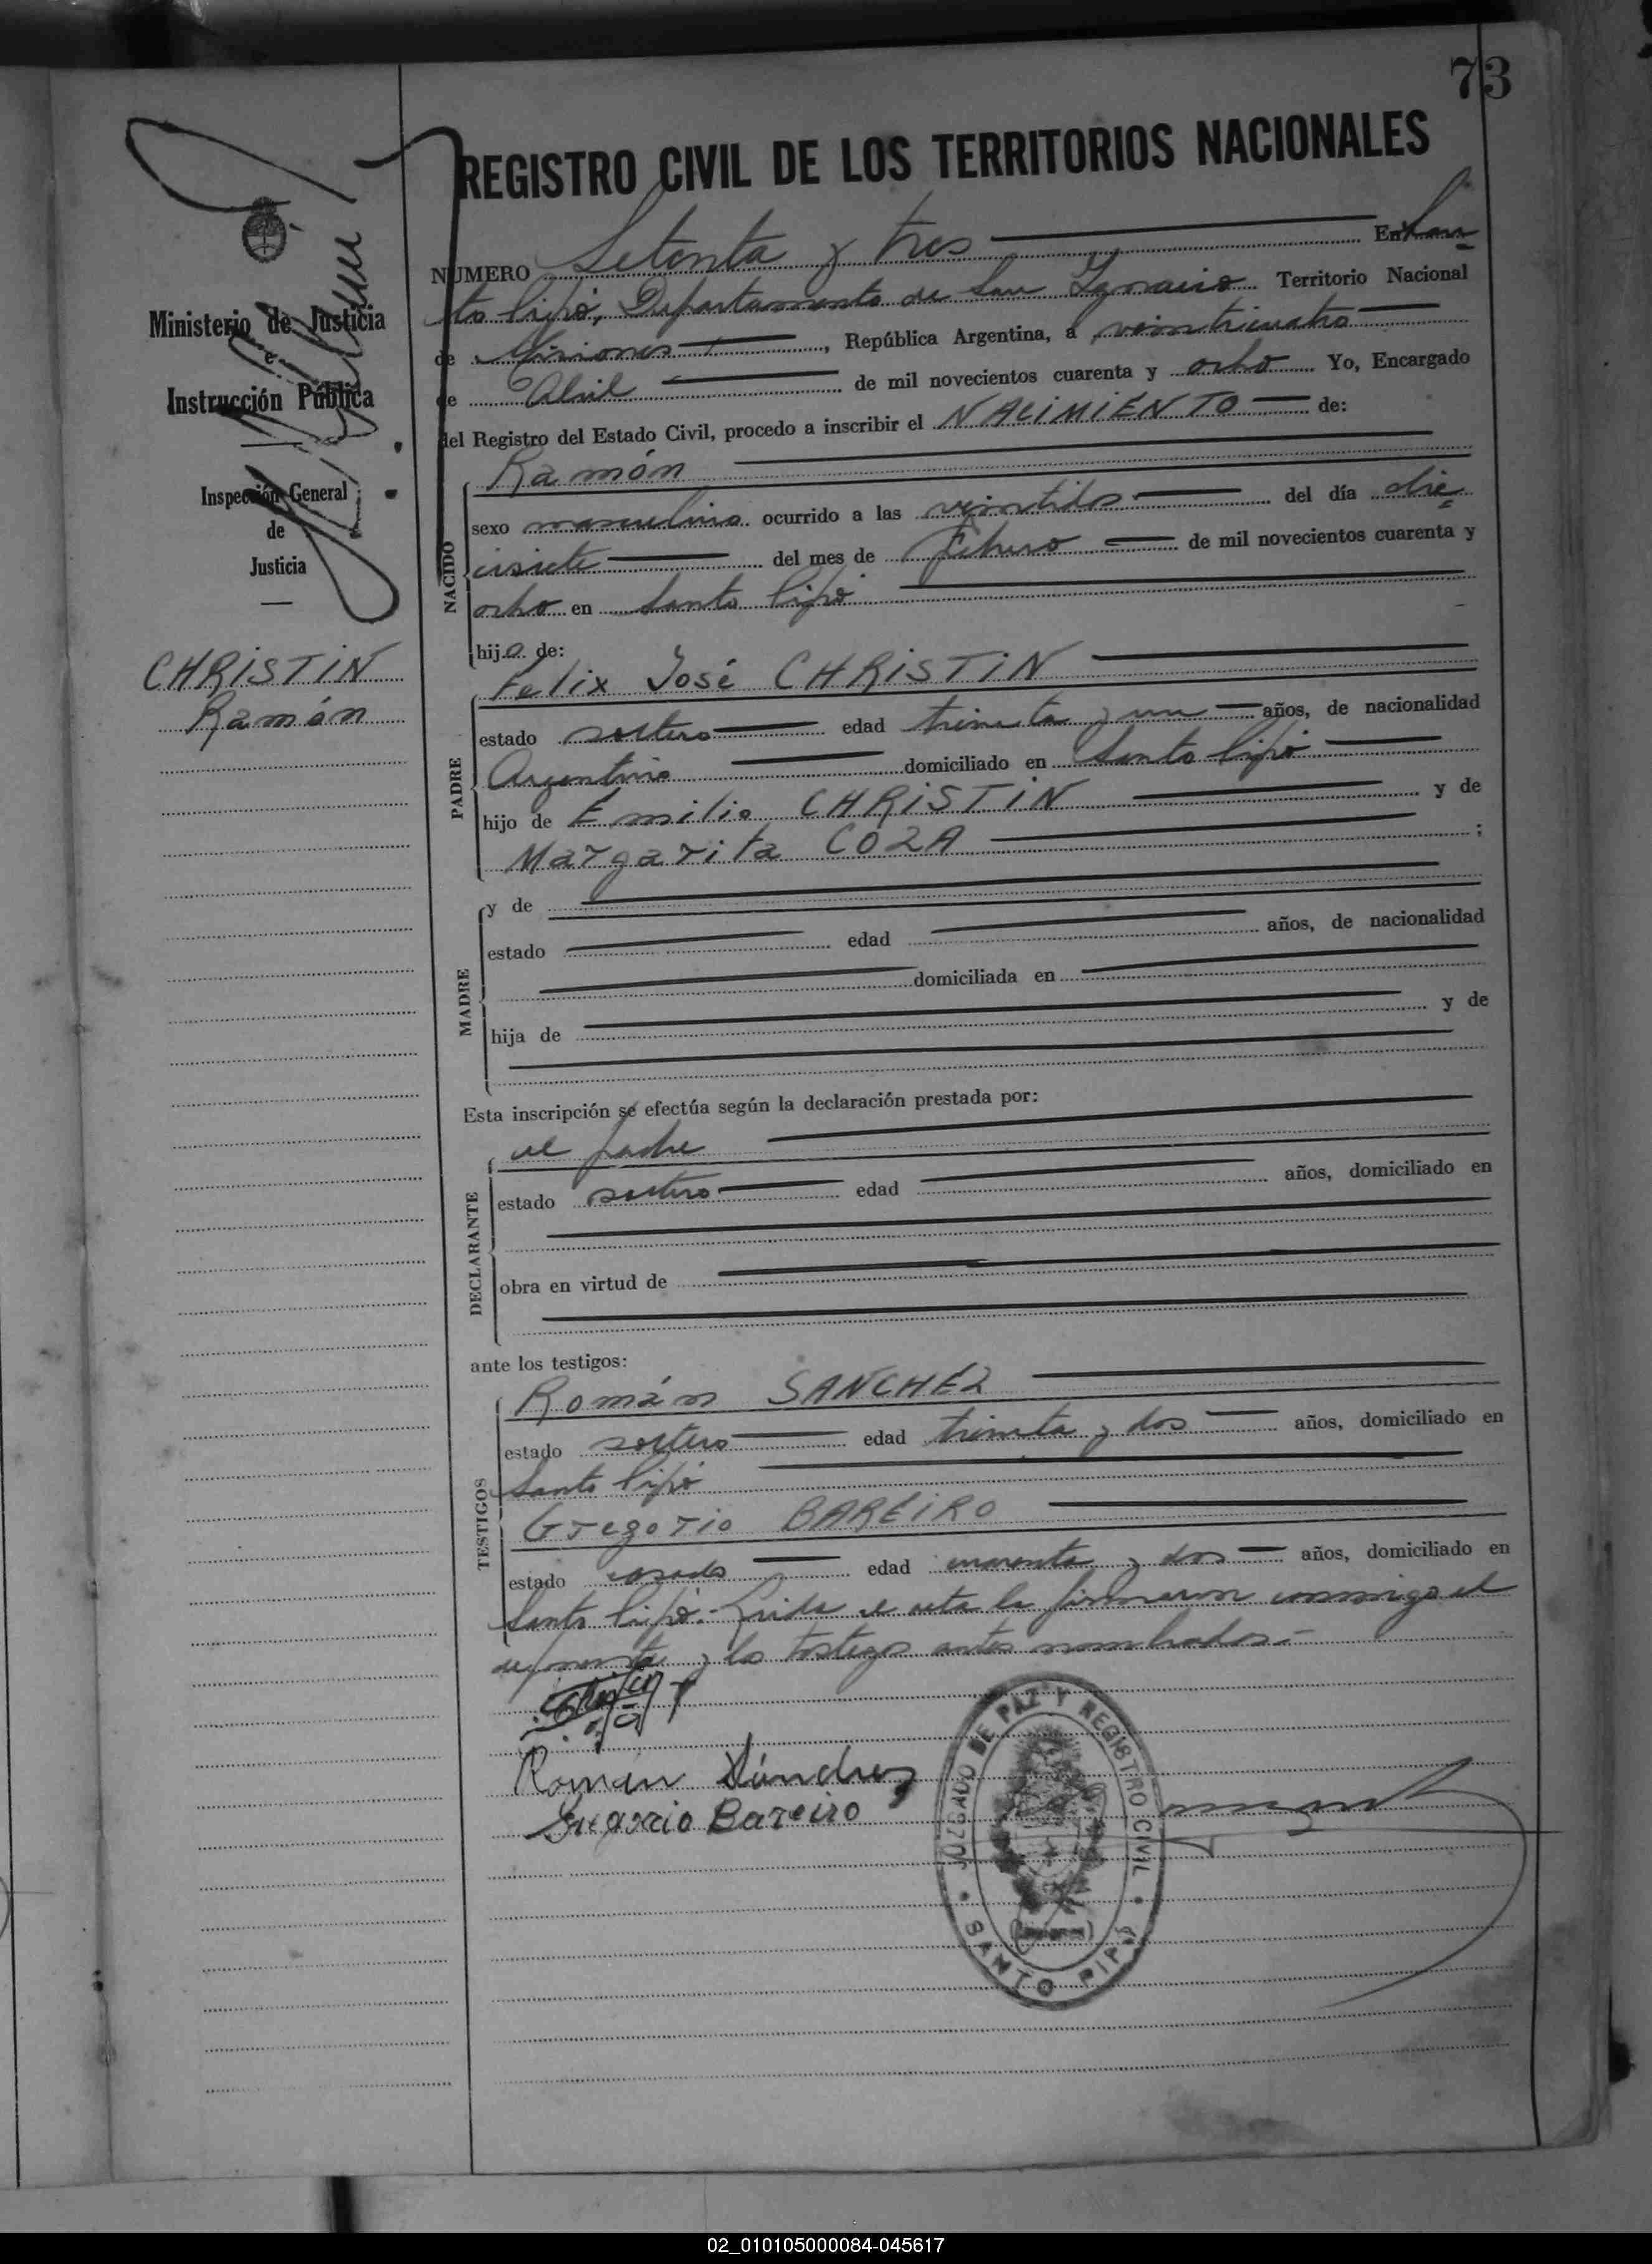 73
REGISTRO CIVIL DE LOS TERRITORIOS NACIONALES
Ministerio de Justicia
e
Instrucción Pública
Inspección General
de
Justicia
CHRISTIN
Ramón
NUMERO Setenta y tres En San
to Pipó, Departamento de San Ignacio Territorio Nacional
de Misiones, República Argentina, a veinticuatro
de Abril de mil novecientos cuarenta y ocho Yo, Encargado
del Registro del Estado Civil, procedo a inscribir el NACIMIENTO de:
NACIDO
Ramón
sexo masculino ocurrido a las veintidos del día die
cisiete del mes de Febrero de mil novecientos cuarenta y
ocho en Santo Pipó
hijo de:
PADRE
Felix José CHRISTIN
estado soltero edad treinta y un años, de nacionalidad
Argentino domiciliado en Santo Pipó
hijo de Emilio CHRISTIN y de
Margarita COZA ;
MADRE
y de
estado edad años, de nacionalidad
domiciliada en
hija de y de
Esta inscripción se efectúa según la declaración prestada por:
DECLARANTE
el padre
estado soltero edad años, domiciliado en
obra en virtud de
ante los testigos:
TESTIGOS
Román SANCHEZ
estado soltero edad treinta y dos años, domiciliado en
Santo Pipó
Gregorio BAREIRO
estado casado edad cuarenta y dos años, domiciliado en
Santo Pipó.- Leida el acta la firmaron conmigo el
deponente y los testigos antes nombrados.-
Román Sánchez
Bareiro
JUZGADO DE PAZ Y REGISTRO CIVIL
SANTO PIPÓ
02_010105000084-045617